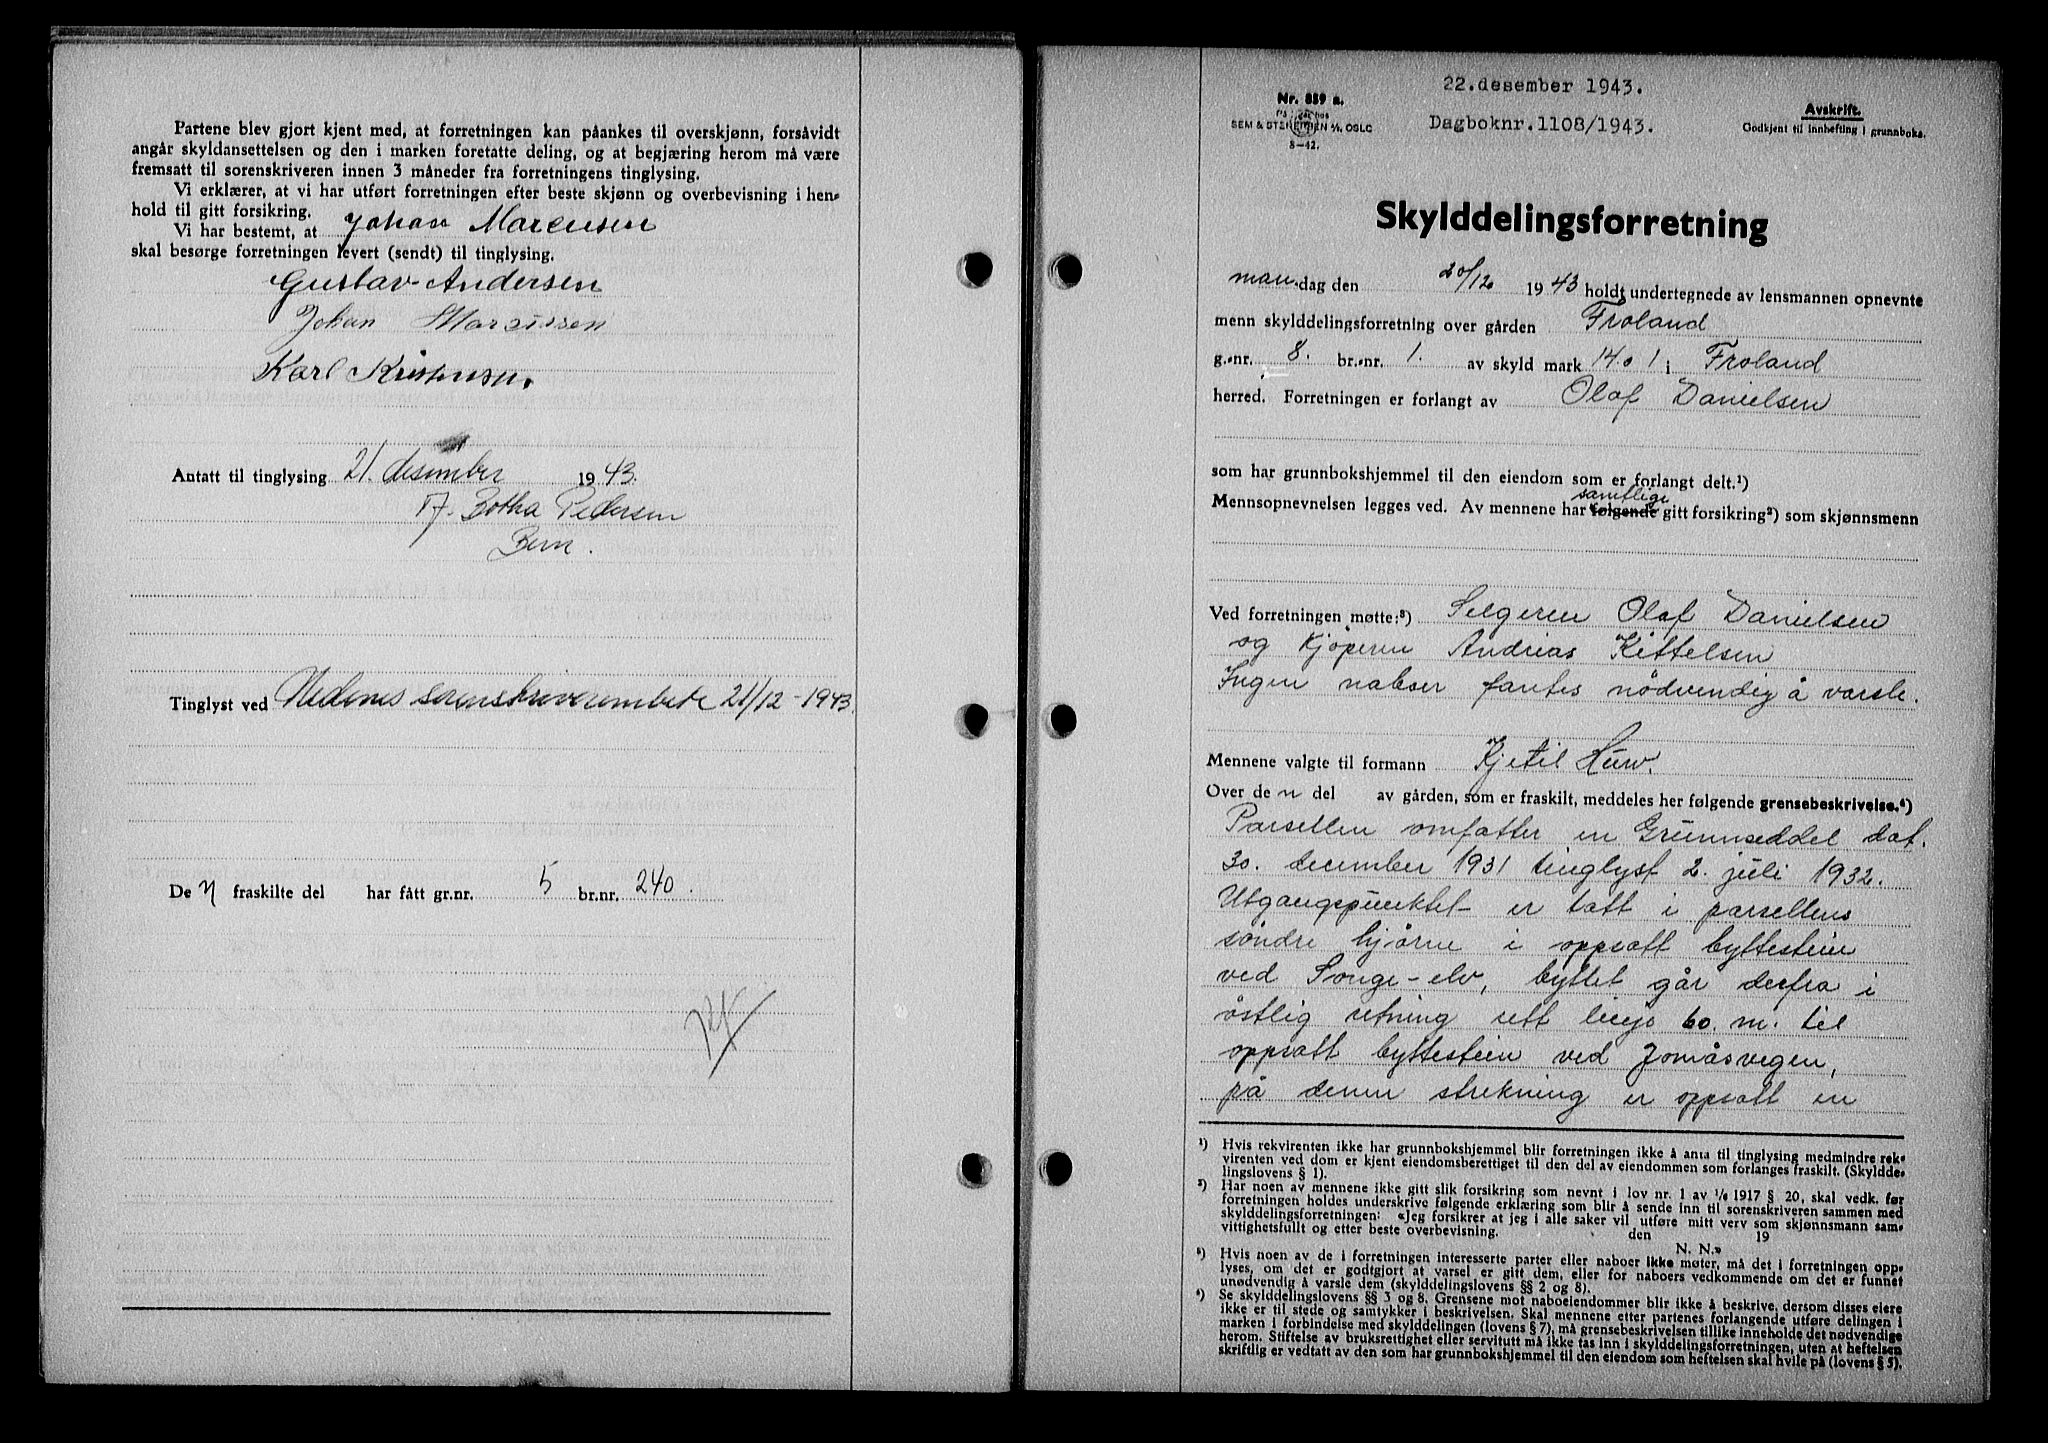 Partene blev gjort kjent med, at forretningen kan påankes til overskjønn, forsåvidt
angår skyldansettelsen og den i marken foretatte deling, og at begjæring herom må være
fremsatt til sorenskriveren innen 3 måneder fra forretningens tinglysing.
Vi erklærer, at vi har utført forretningen efter beste skjønn og overbevisning i hen-
hold til gitt forsikring.
Vi har bestemt, at Johan Marcussen
skal besørge forretningen levert (sendt) til tinglysing.
Gustav Andersen
Johan Marcussen
Karl Kristensen.
Antatt til tinglysing 21. desember 1943.
Botha Pedersen
Tinglyst ved Nedenes sorenskriverembete 21/12-1943.
De n fraskilte del har fått gr.nr. 5 br.nr. 240.
22.desember 1943.
Nr. 839 a.
SEM & STENERSEN A/S, OSLO
8-42.
Dagboknr.1108/1943.
Avskrift.
Godkjent til innhefting i grunnboka.
Skylddelingsforretning
man.dag den 20/12 1943 holdt undertegnede av lensmannen opnevnte
menn skylddelingsforretning over gården Froland
g.-nr. 8. br.-nr. 1. av skyld mark 1401 i Froland
herred. Forretningen er forlangt av Olaf Danielsen
som har grunnbokshjemmel til den eiendom som er forlangt delt.¹)
samtlige
Mennsopnevnelsen legges ved. Av mennene har følgende gitt forsikring²) som skjønnsmenn
Ved forretningen møtte:³) Selgeren Olaf Danielsen
og kjøperen Andreas Kittelsen
Ingen naboer fantes nödvendig å varsle.
Mennene valgte til formann Kjetil Huw.
Over de n del av gården, som er fraskilt, meddeles her følgende grensebeskrivelse.⁴)
Parsellen omfatter en Grunnseddel dat.
30. december 1931 tinglyst 2. juli 1932.
Utgangspunktet er tatt i parsellens
söndre hjörne i oppsatt byttestein
ved Songe-elv, byttet går derfra i
östlig retning rett linje 60. m. til
oppsatt byttestein ved Jomåsvegen,
på denne strekning er oppsatt en
¹) Hvis rekvirenten ikke har grunnbokshjemmel blir forretningen ikke å anta til tinglysing medmindre rek-
virenten ved dom er kjent eiendomsberettiget til den del av eiendommen som forlanges fraskilt. (Skyldde-
lingslovens § 1).
²) Har noen av mennene ikke gitt slik forsikring som nevnt i lov nr. 1 av 1/6 1917 § 20, skal vedk. før
forretningen holdes underskrive følgende erklæring som blir å sende inn til sorenskriveren sammen med
skylddelingsforretningen: «Jeg forsikrer at jeg i alle saker vil utføre mitt verv som skjønnsmann sam-
vittighetsfullt og etter beste overbevisning. den 19
N. N.»
³) Hvis noen av de i forretningen interesserte parter eller naboer ikke møter, må det i forretningen opp-
lyses, om det er godtgjort at varsel er gitt dem, eller for naboers vedkommende om det er funnet
unødvendig å varsle dem (skylddelingslovens §§ 2 og 8).
⁴) Se skylddelingslovens §§ 3 og 8. Grensene mot naboeiendommer blir ikke å beskrive, dersom disses eiere
ikke er til stede og samtykker i beskrivelsen. Skal mennene etter partenes forlangende utføre delingen i
marken i forbindelse med skylddelingen (lovens § 7), må grensebeskrivelsen tillike inneholde det nødvendige
herom. Stiftelse av bruksrettighet eller servitutt må ikke tas inn i skylddelingsforretningen, uten at heftelsen
skriftlig er vedtatt av den som har grunnbokshjemmel til den eiendom som heftelsen skal hvile på (lovens § 5).